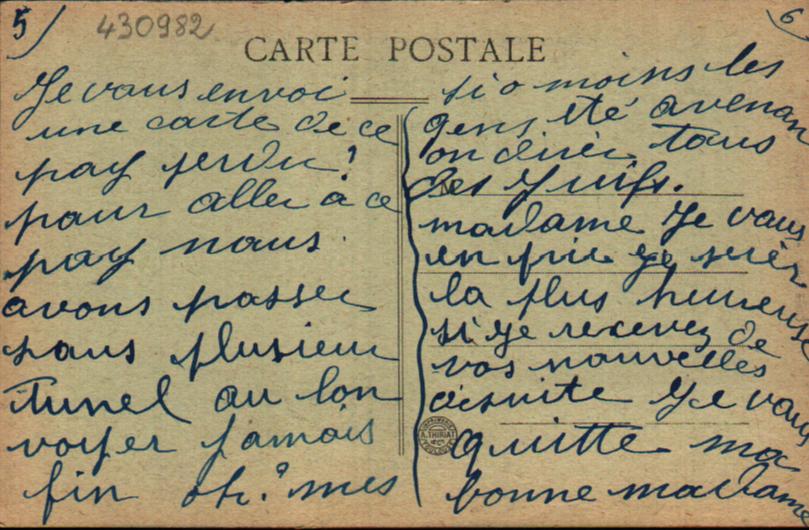 5/
430982
6
CARTE POSTALE
Je vous envoi
une carte de ce
pay perdu!
pour aller à ce
pay nous.
avons passer
sous plusieur
Tunel au lon
voyer jamais
fin oh.! mes
si o moins les
gens été avenan
on direr tous
des Juifs.
madame Je vous
en prie Je serer
la plus hureuse
si Je recevez de
vos nouvelles
ensuite Je vous
quitte ma
bonne madame
A. THIRIAT
TOULOUSE